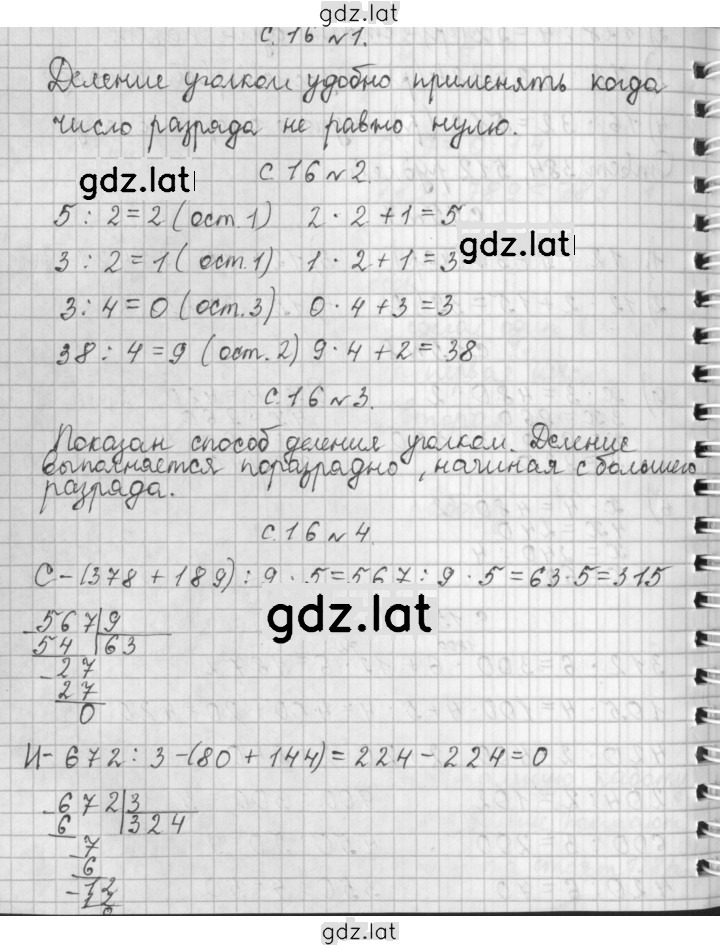 gdz.lat
с. 16 № 1.
Деление уголком удобно применять когда
число разряда не равно нулю.
gdz.lat
с. 16 № 2.
5 : 2 = 2 (ост. 1) 2 · 2 + 1 = 5
gdz.lat
3 : 2 = 1 (ост. 1) 1 · 2 + 1 = 3
3 : 4 = 0 (ост. 3) 0 · 4 + 3 = 3
38 : 4 = 9 (ост. 2) 9 · 4 + 2 = 38
с. 16 № 3.
Показан способ деления уголком. Деление
выполняется поразрядно, начиная с большего
разряда.
с. 16 № 4.
С - (378 + 189) : 9 · 5 = 567 : 9 · 5 = 63 · 5 = 315
gdz.lat
- 567 | 9
54 | 63
- 27
27
0
И - 672 : 3 - (80 + 144) = 224 - 224 = 0
- 672 | 3
6 | 324
- 7
6
- 12
12
0
gdz.lat